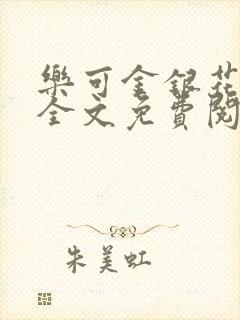 樂可金銀花
全文免費閱
朱美虹